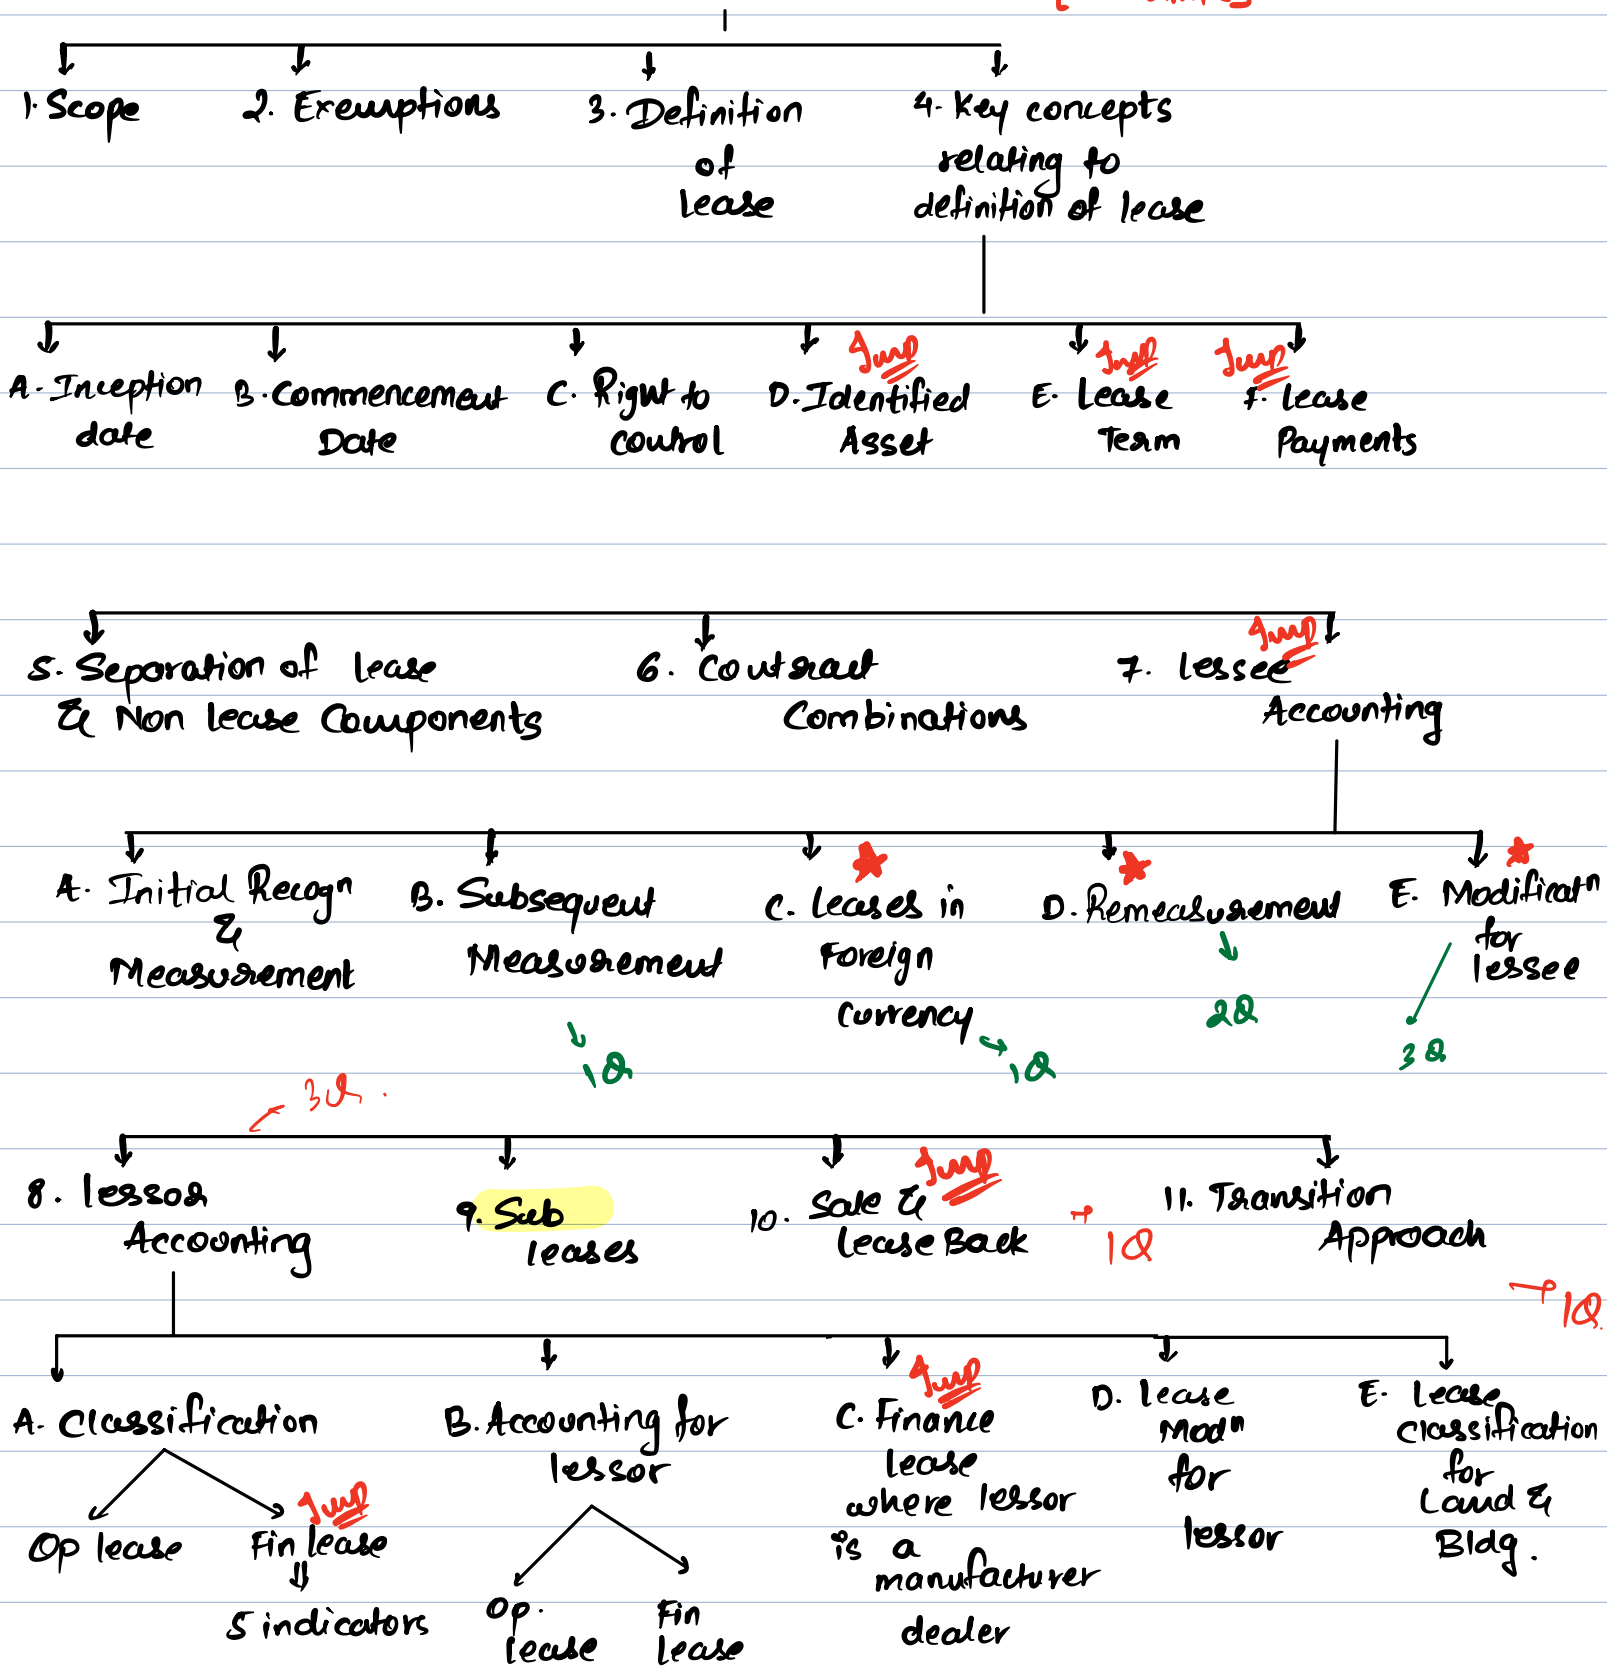 1. Scope
2. Exemptions
3. Definition
of
lease
4. Key concepts
relating to
definition of lease
A. Inception
date
B. Commencement
Date
C. Right to
control
Imp
D. Identified
Asset
Imp
E. Lease
Term
Imp
F. Lease
Payments
5. Separation of lease
& Non lease Components
6. Contract
Combinations
Imp
7. lessee
Accounting
A. Initial Recogn
&
Measurement
B. Subsequent
Measurement
1Q
C. leases in
Foreign
Currency
1Q
D. Remeasurement
2Q
E. Modificatn
for
lessee
3Q
3Q.
8. lessor
Accounting
9. Sub
leases
Imp
10. Sale &
lease Back
1Q
11. Transition
Approach
1Q.
A. Classification
Op lease
Imp
Fin lease
5 indicators
B. Accounting for
lessor
Op.
lease
Fin
lease
Imp
C. Finance
lease
where lessor
is a
manufacturer
dealer
D. lease
Modn
for
lessor
E. Lease
classification
for
Land &
Bldg.